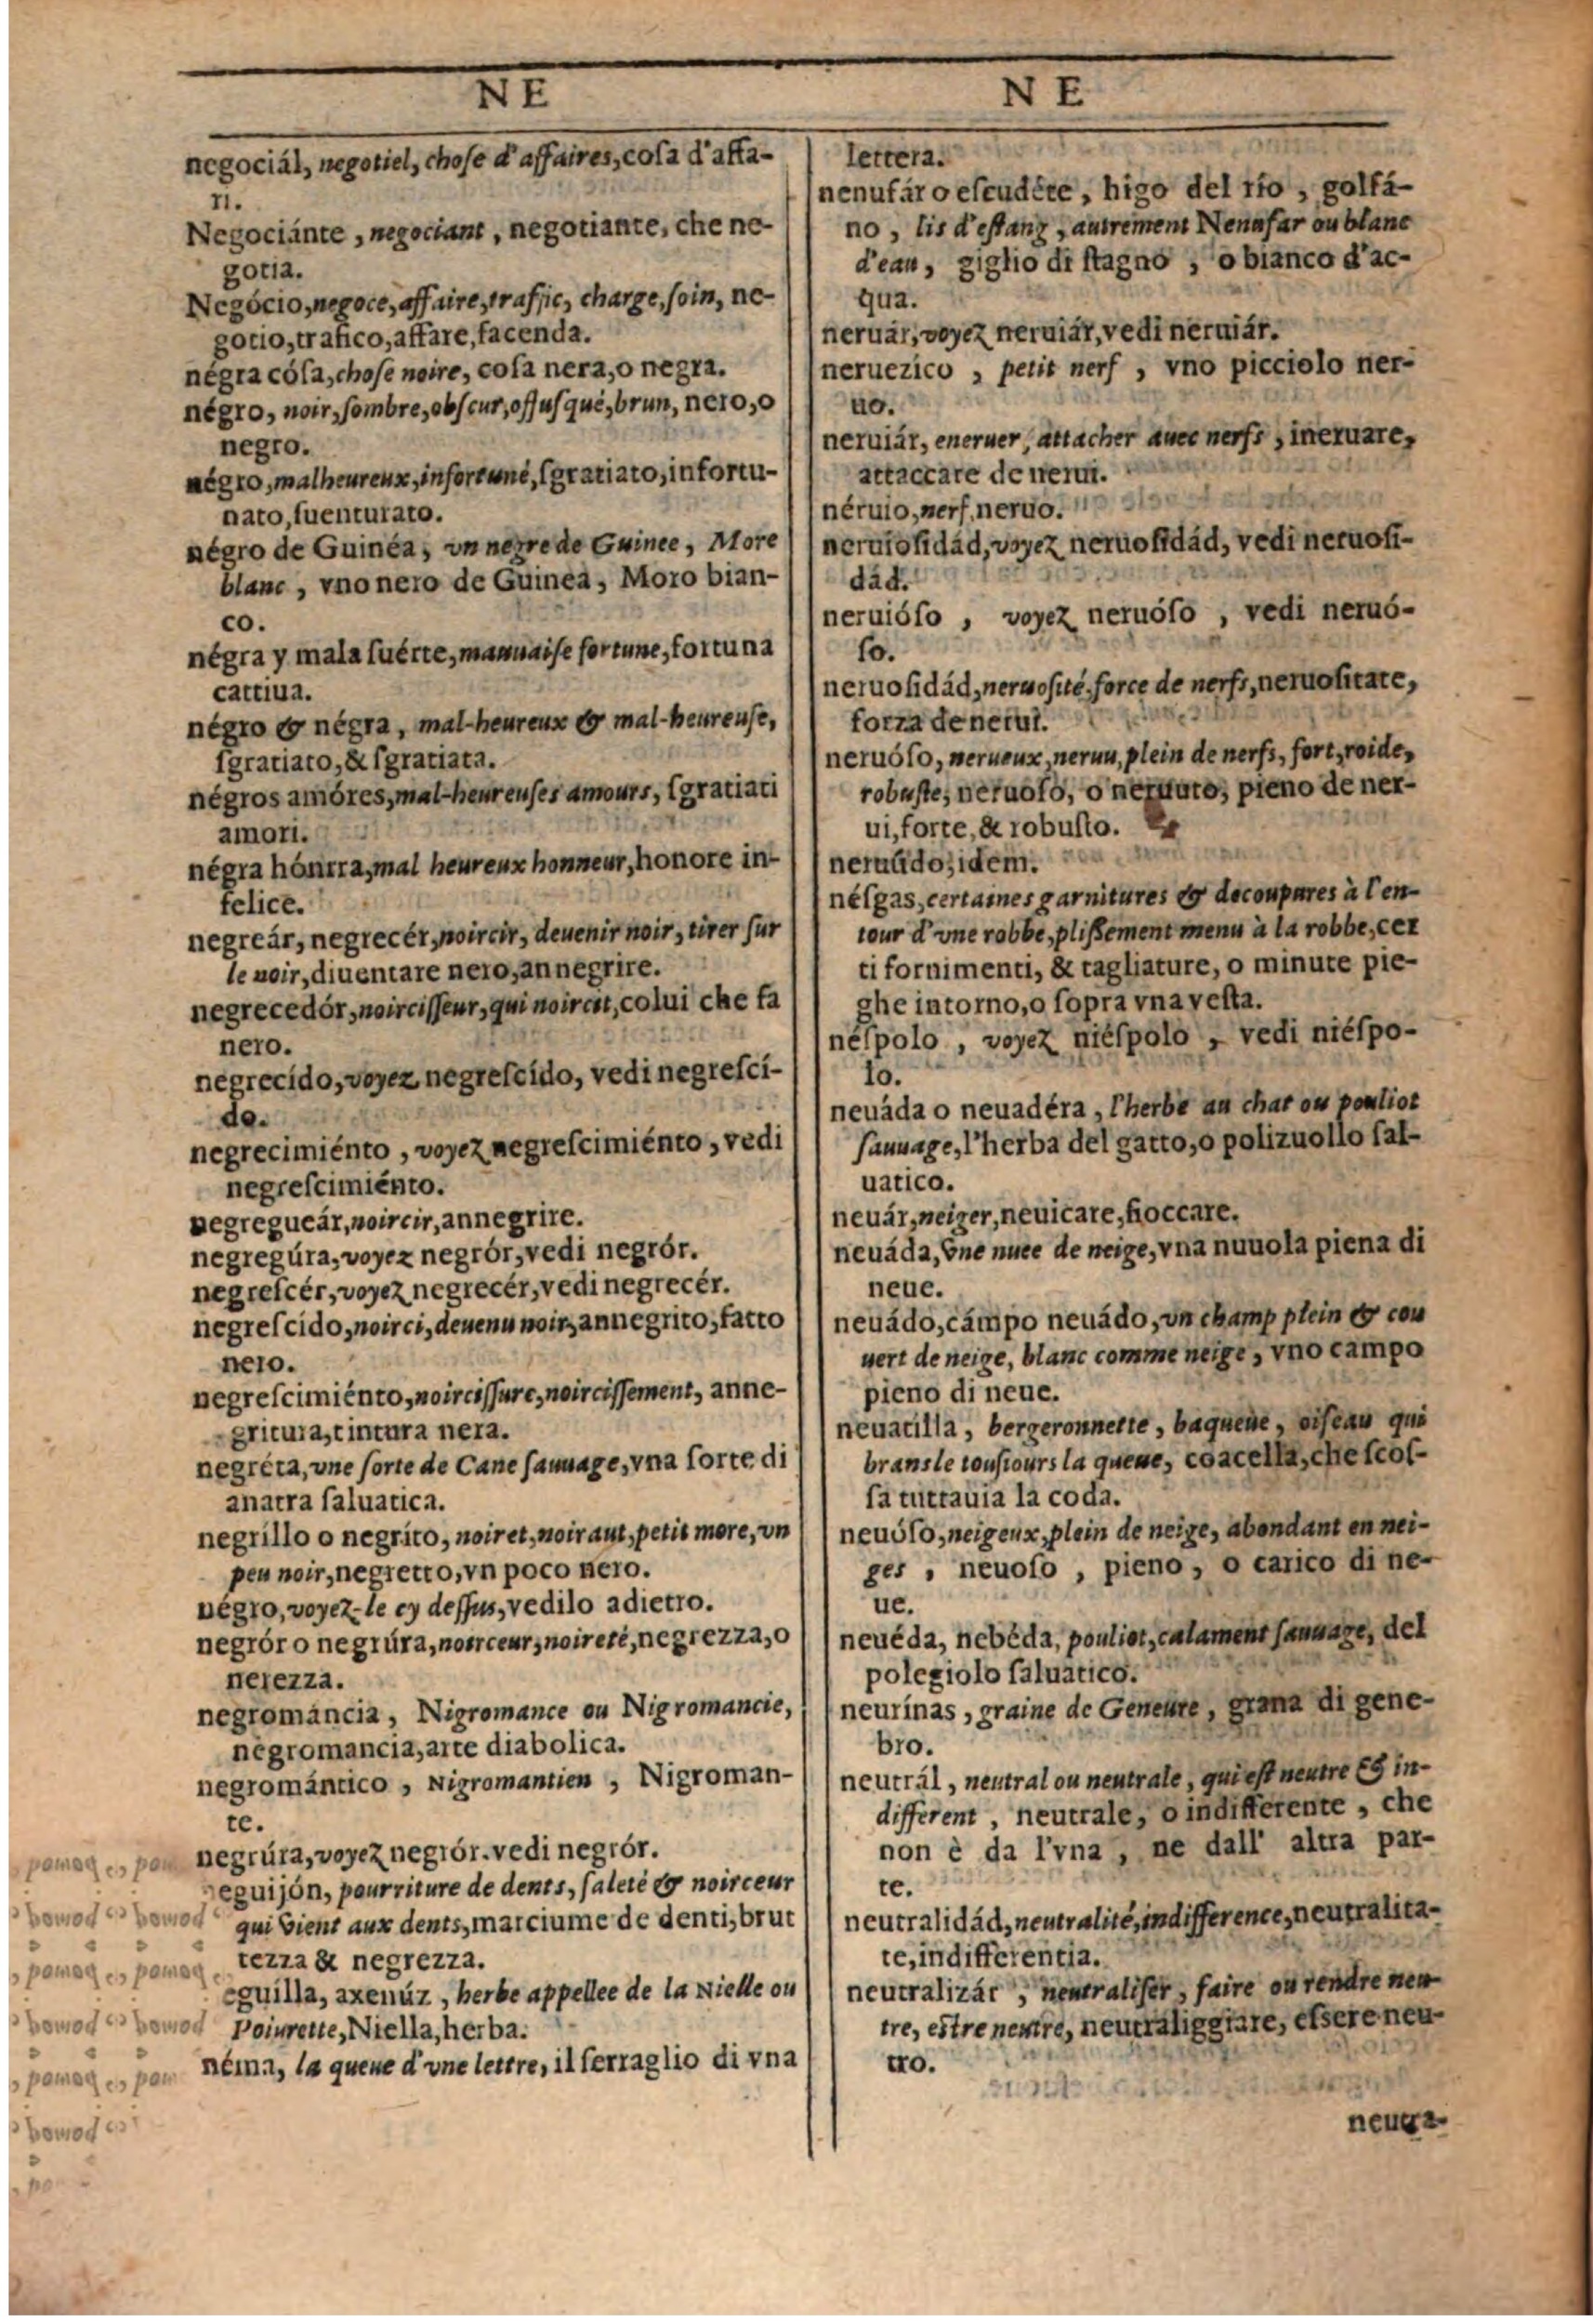 NE
negociál, negotiel, choſe d'affaires, coſa d'affa-
ri.
Negociánte, negociant, negotiante, che ne-
gotia.
Negócio, negoce, affaire, traffic, charge, ſoin, ne-
gotio, trafico, affare, facenda.
négra cóſa, choſe noire, coſa nera, o negra.
négro, noir, ſombre, obſcur, offuſqué, brun, nero, o
negro.
négro, malheureux, infortuné, ſgratiato, infortu-
nato, ſuenturato.
négro de Guinéa, vn negre de Guinee, More
blanc, vno nero de Guinea, Moro bian-
co.
négra y mala ſuérte, mauuaiſe fortune, fortuna
cattiua.
négro & négra, mal-heureux & mal-heureuſe,
ſgratiato, & ſgratiata.
négros amóres, mal-heureuſes amours, ſgratiati
amori.
négra hónrra, mal heureux honneur, honore in-
felice.
negreár, negrecér, noircir, deuenir noir, tirer ſur
le noir, diuentare nero, annegrire.
negrecedór, noirciſſeur, qui noircit, colui che fa
nero.
negrecído, voyez negreſcído, vedi negreſcí-
do.
negrecimiénto, voyez negreſcimiénto, vedi
negreſcimiénto.
negregueár, noircir, annegrire.
negregúra, voyez negrór, vedi negrór.
negreſcér, voyez negrecér, vedi negrecér.
negreſcido, noirci, deuenu noir, annegrito, fatto
nero.
negreſcimiénto, noirciſſure, noirciſſement, anne-
gritura, tintura nera.
negréta, vne ſorte de Cane ſauuage, vna ſorte di
anatra ſaluatica.
negríllo o negríto, noiret, noiraut, petit more, vn
peu noir, negretto, vn poco nero.
négro, voyez-le cy deſſus, vedilo adietro.
negrór o negrúra, noirceur, noireté, negrezza, o
nerezza.
negrománcia, Nigromance ou Nigromancie,
negromancia, arte diabolica.
negromántico, Nigromantien, Nigroman-
te.
negrúra, voyez negrór. vedi negrór.
eguijón, pourriture de dents, ſaleté & noirceur
qui vient aux dents, marciume de denti, brut
tezza & negrezza.
eguilla, axenúz, herbe appellee de la Nielle ou
Poiurette, Niella, herba.
néma, la queue d'vne lettre, il ſerraglio di vna
NE
lettera.
nenufár o eſcudéte, higo del río, golfá-
no, lis d'eſtang, autrement Nenufar ou blanc
d'eau, giglio di ſtagno, o bianco d'ac-
qua.
neruár, voyez neruiár, vedi neruiár.
neruezico, petit nerf, vno picciolo ner-
uo.
neruiár, eneruer, attacher auec nerfs, ineruare,
attaccare de nerui.
néruio, nerf, neruo.
neruioſidád, voyez neruoſidád, vedi neruoſi-
dád.
neruióſo, voyez neruóſo, vedi neruó-
ſo.
neruoſidád, neruoſité, force de nerfs, neruoſitate,
forza de nerui.
neruóſo, nerueux, neruu, plein de nerfs, fort, roide,
robuſte, neruoſo, o neruuto, pieno de ner-
ui, forte, & robuſto.
neruúdo, idem.
néſgas, certaines garnitures & decoupures à l'en-
tour d'vne robbe, pliſſement menu à la robbe, cer
ti fornimenti, & tagliature, o minute pie-
ghe intorno, o ſopra vna veſta.
néſpolo, voyez niéſpolo, vedi niéſpo-
lo.
neuáda o neuadéra, l'herbe au chat ou pouliot
ſauuage, l'herba del gatto, o polizuollo ſal-
uatico.
neuár, neiger, neuicare, fioccare.
neuáda, vne nuee de neige, vna nuuola piena di
neue.
neuádo, cámpo neuádo, vn champ plein & cou
uert de neige, blanc comme neige, vno campo
pieno di neue.
neuatilla, bergeronnette, baqueue, oiſeau qui
branſle touſiours la queue, coacella, che ſcoſ-
ſa tuttauia la coda.
neuóſo, neigeux, plein de neige, abondant en nei-
ges, neuoſo, pieno, o carico di ne-
ue.
neuéda, nebéda, pouliot, calament ſauuage, del
polegiolo ſaluatico.
neurínas, graine de Geneure, grana di gene-
bro.
neutrál, neutral ou neutrale, qui eſt neutre & in-
different, neutrale, o indifferente, che
non è da l'vna, ne dall' altra par-
te.
neutralidád, neutralité, indifference, neutralita-
te, indifferentia.
neutralizár, neutraliſer, faire ou rendre neu
tre, eſtre neutre, neutraliggiare, eſsere neu-
tro.
neutra-